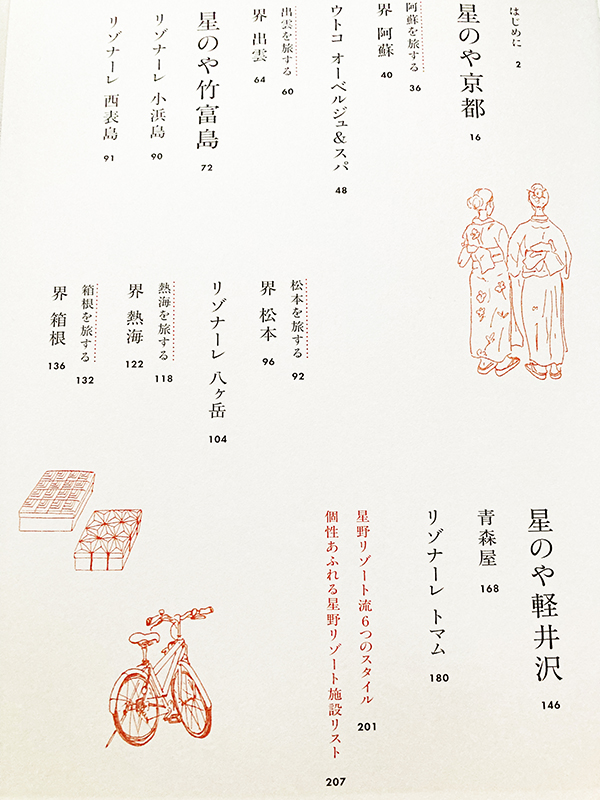 はじめに 2
星のや京都 16
阿蘇を旅する 36
界 阿蘇 40
ウトコ オーベルジュ&スパ 48
出雲を旅する 60
界 出雲 64
星のや竹富島 72
リゾナーレ 小浜島 90
リゾナーレ 西表島 91
松本を旅する 92
界 松本 96
リゾナーレ 八ヶ岳 104
熱海を旅する 118
界 熱海 122
箱根を旅する 132
界 箱根 136
星のや軽井沢 146
青森屋 168
リゾナーレ トマム 180
星野リゾート流6つのスタイル 201
個性あふれる星野リゾート施設リスト 207